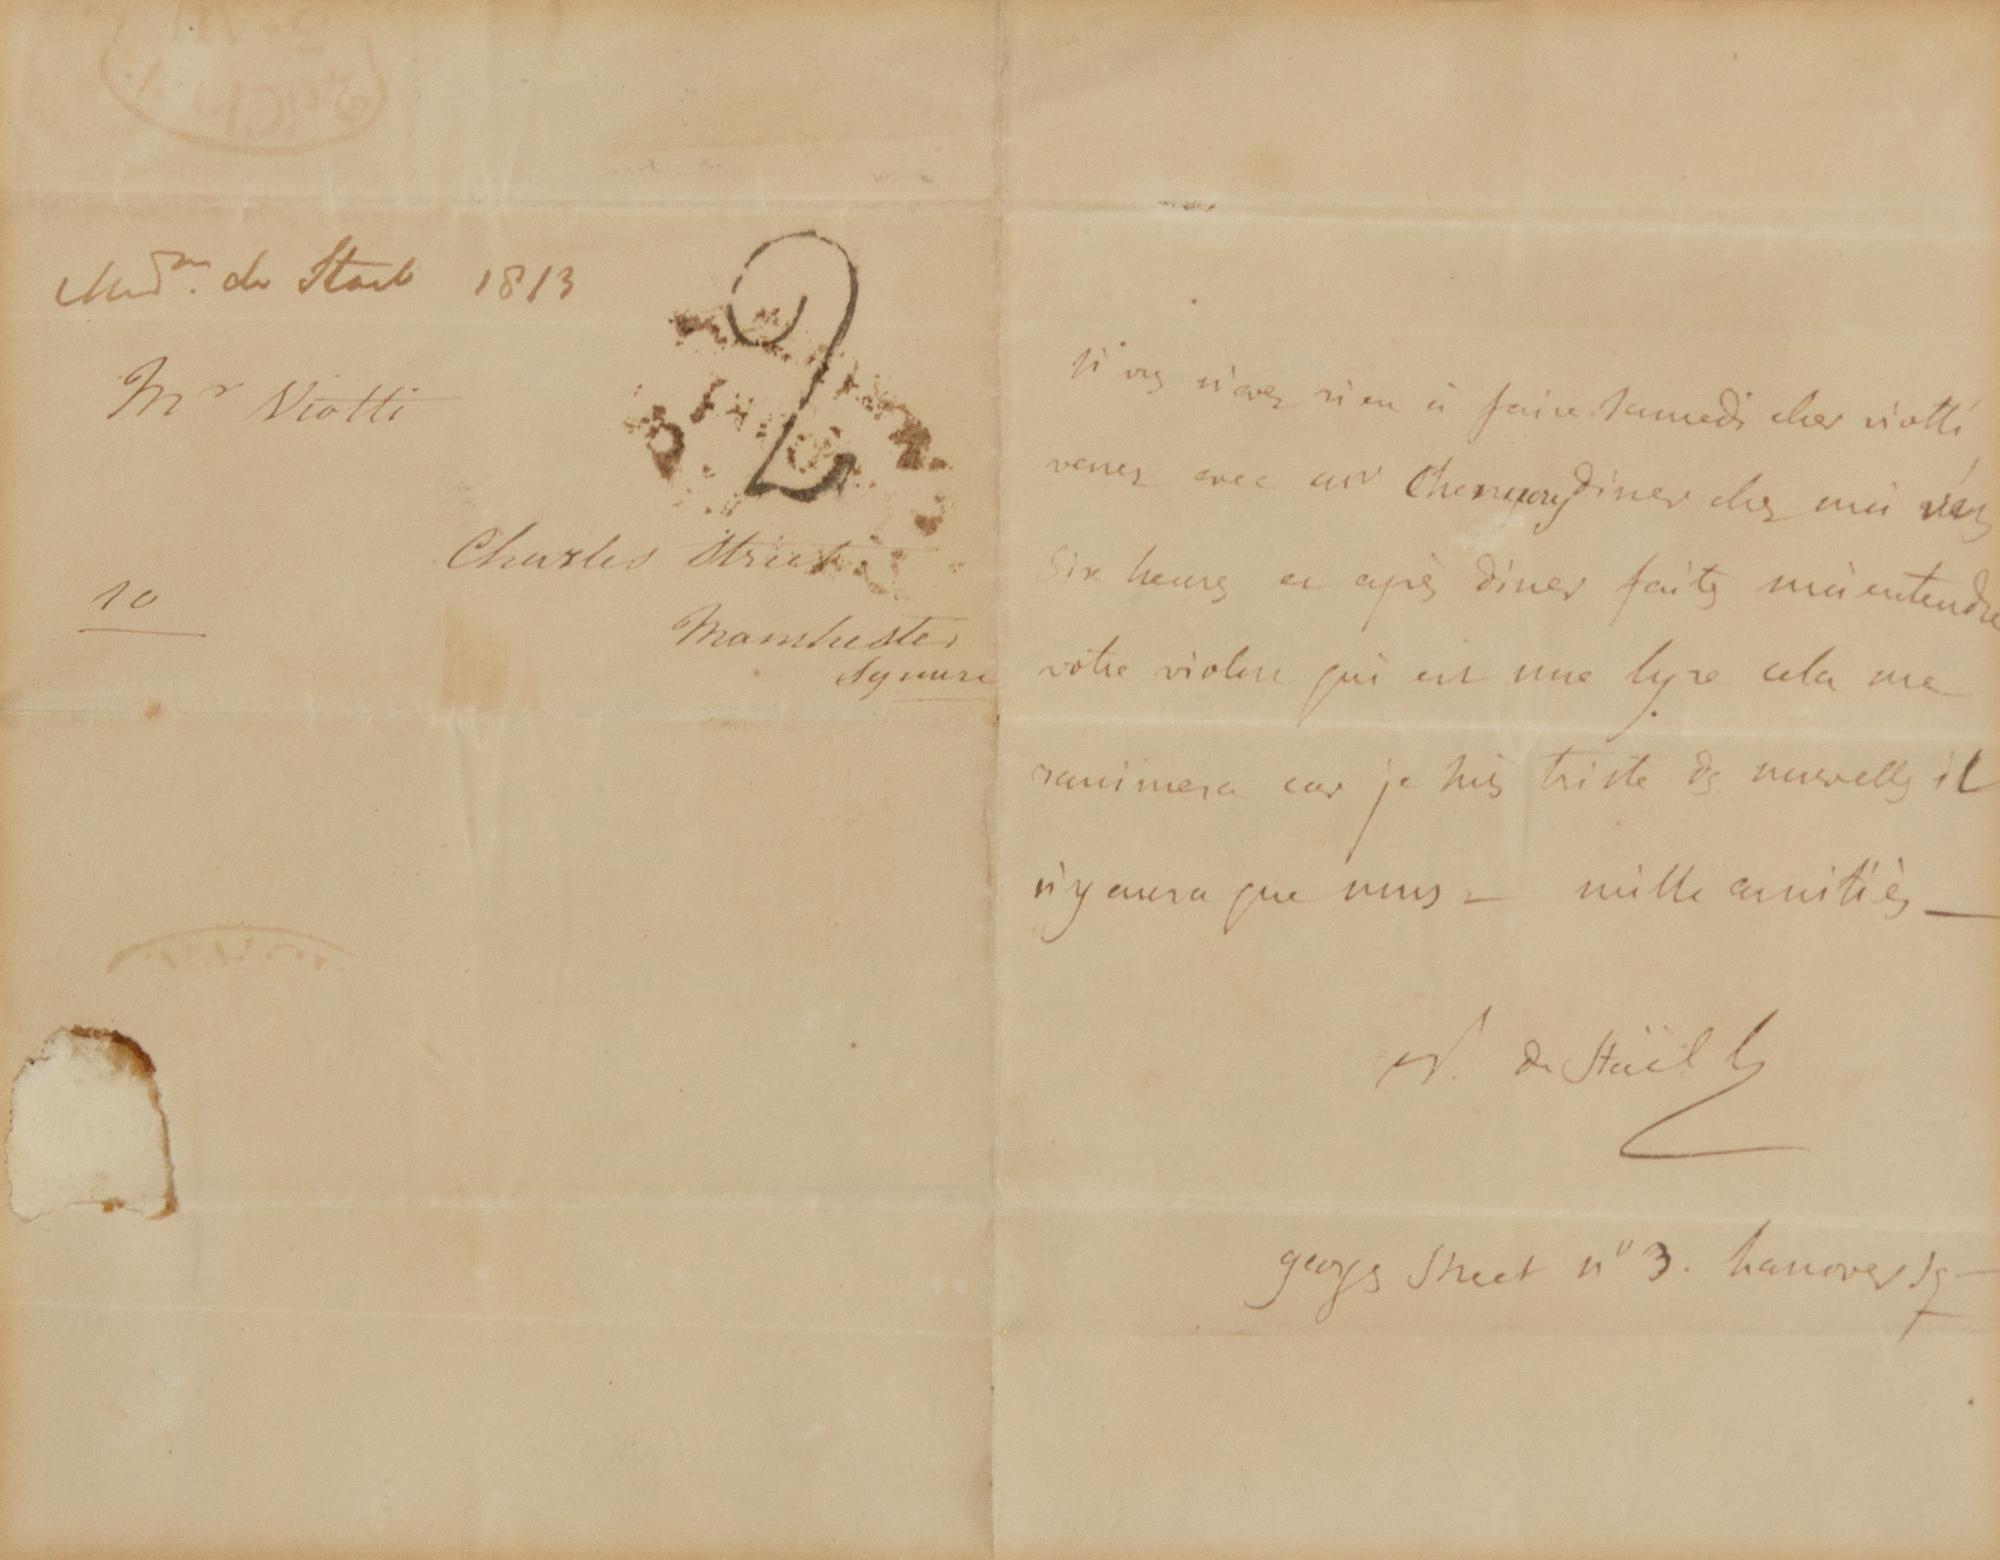 Mad.m de Stael 1813
Mr Viotti
Charles Street
10
Manchester
Square
2
si vs n'avez rien à faire samedi cher viotti
venez avec mr diner chez moi
Six heures et après diner faites moi entendre
votre violon qui est une lyre cela me
ranimera car je suis triste ds nouvelles il
n'y aura que nous – mille amitiés –
N. de Staël
georges Street n° 3. hanover sq –